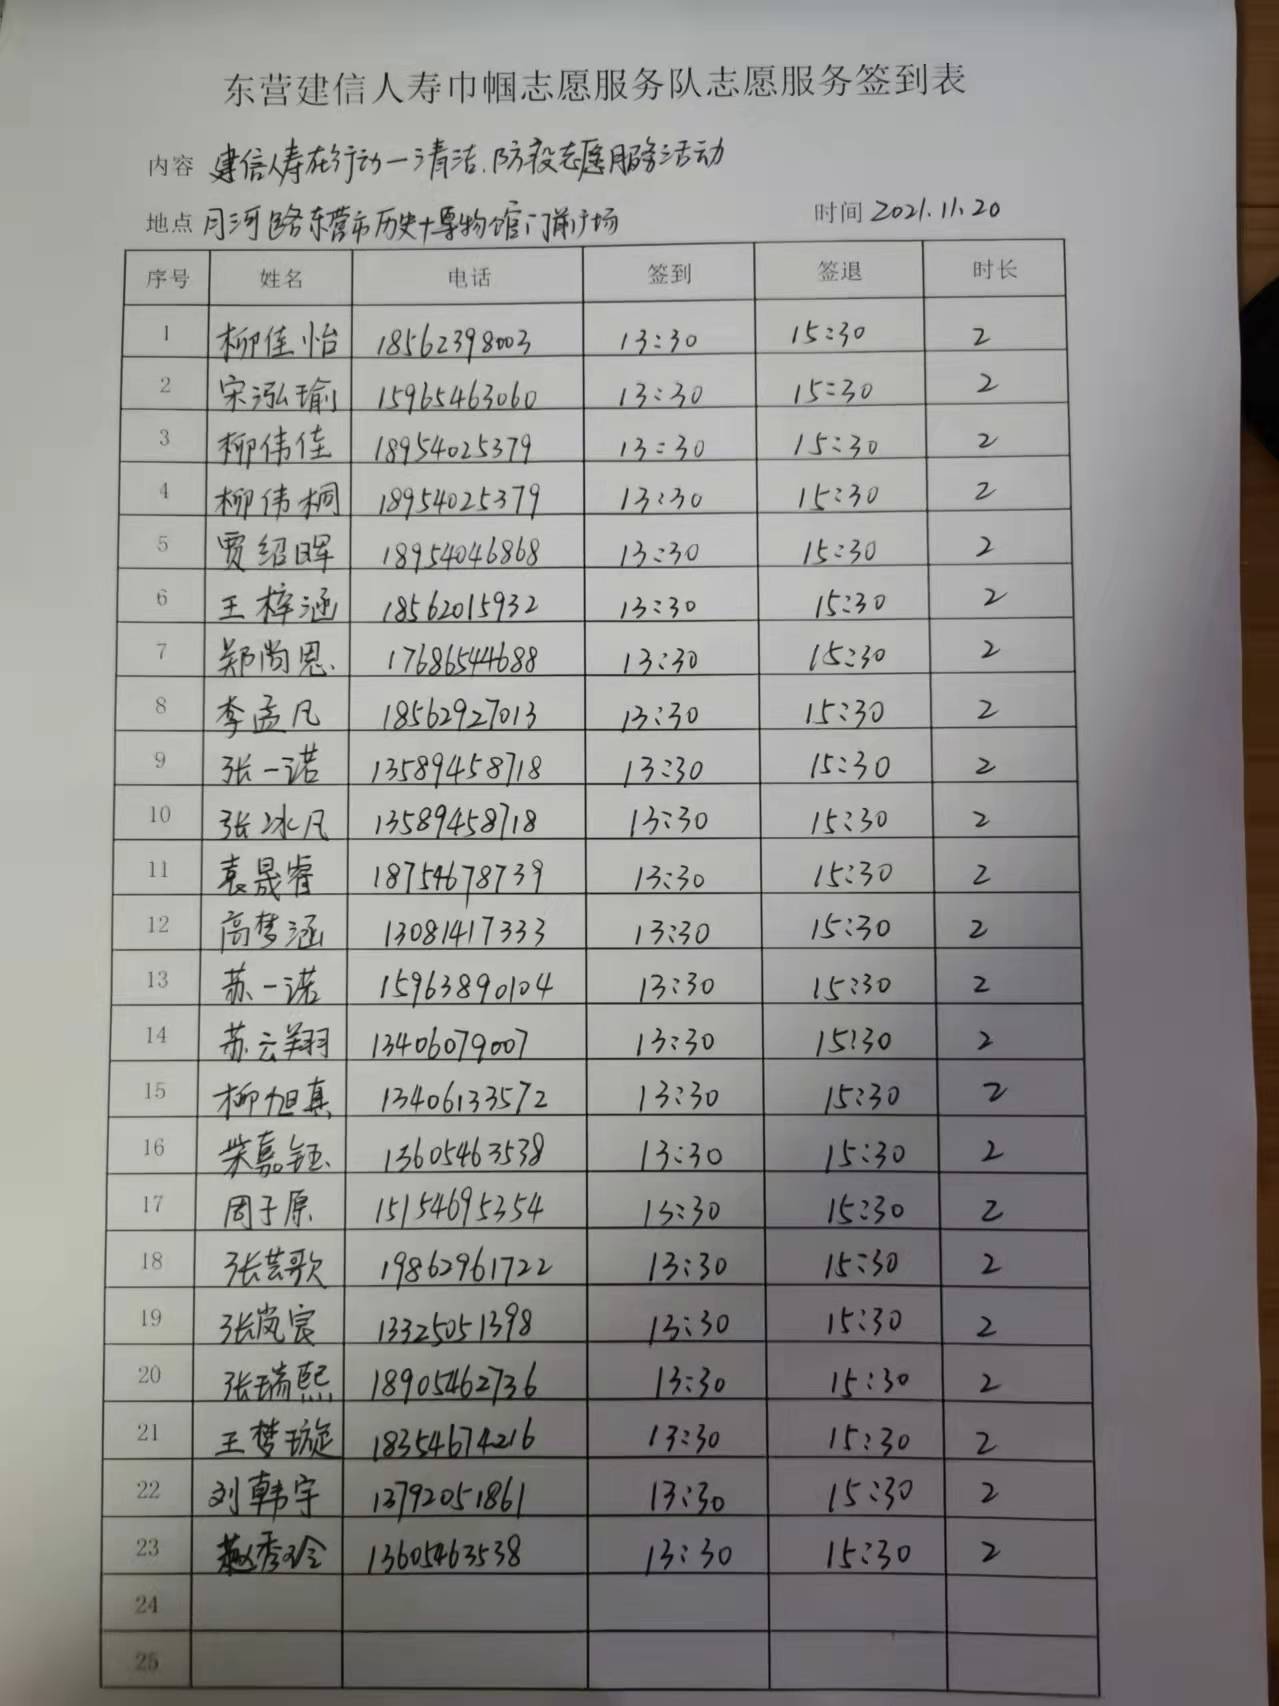 东营建信人寿巾帼志愿服务队志愿服务签到表
内容 建信人寿在行动—清洁、防疫志愿服务活动
地点 月河路东营市历史博物馆门前广场 时间 2021.11.20
序号 姓名 电话 签到 签退 时长
1 柳佳怡 18562398003 13:30 15:30 2
2 宋泓瑜 15965463060 13:30 15:30 2
3 柳伟佳 18954025379 13:30 15:30 2
4 柳伟桐 18954025379 13:30 15:30 2
5 贾绍晖 18954046868 13:30 15:30 2
6 王梓涵 18562015932 13:30 15:30 2
7 郑尚恩 17686544688 13:30 15:30 2
8 李孟凡 18562927013 13:30 15:30 2
9 张一诺 13589458718 13:30 15:30 2
10 张冰凡 13589458718 13:30 15:30 2
11 袁晟睿 18754678739 13:30 15:30 2
12 高梦涵 13081417333 13:30 15:30 2
13 苏一诺 15963890104 13:30 15:30 2
14 苏云翔 13406079007 13:30 15:30 2
15 柳旭真 13406133572 13:30 15:30 2
16 柴嘉钰 13605463538 13:30 15:30 2
17 周子原 15154695354 13:30 15:30 2
18 张芸歌 19862961722 13:30 15:30 2
19 张岚宸 13325051398 13:30 15:30 2
20 张瑞熙 18905462736 13:30 15:30 2
21 王梦璇 18354674216 13:30 15:30 2
22 刘韩宇 13792051861 13:30 15:30 2
23 秀玲 13605463538 13:30 15:30 2
24
25